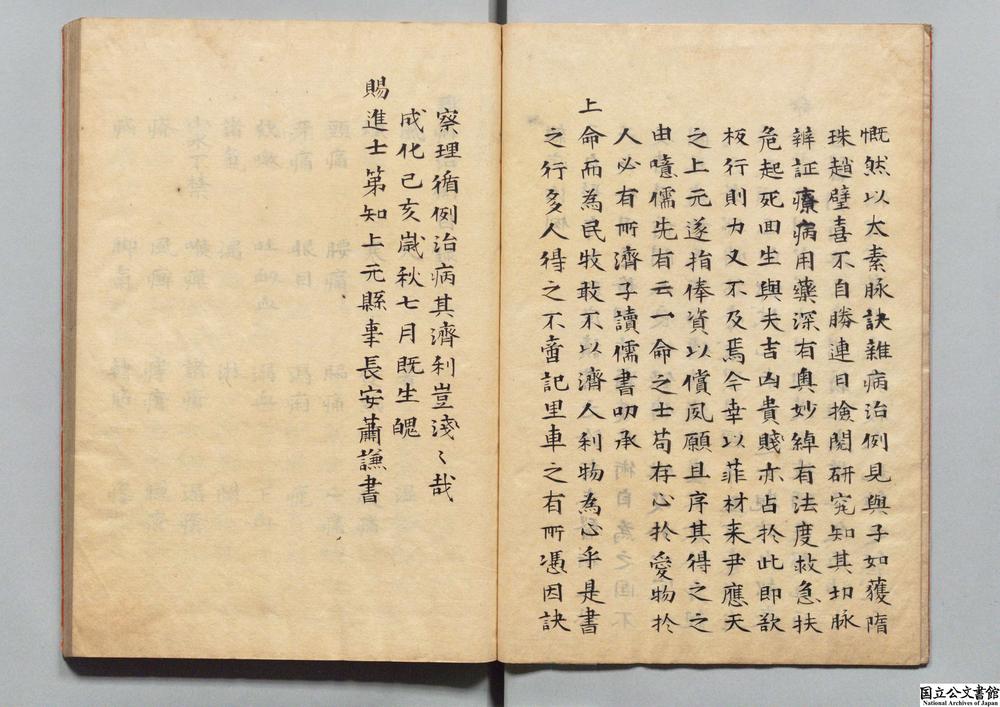 慨然以太素脉訣雜病治例見與子如獲隋
珠趙璧喜不自勝連日撿閱研究知其切脉
辨証療病用藥深有奧妙綽有法度救急扶
危起死回生與夫吉凶貴賤亦占於此即欲
板行則力又不及焉今幸以菲材来尹應天
之上元遂捐俸資以償夙願且序其得之之
由噫儒先有云一命之士苟存心扵愛物扵
人必有所濟子讀儒書叨承
上命而為民牧敢不以濟人利物為心乎是書
之行多人得之不啻記里車之有所憑因訣
察理循例治病其濟利豈淺〻哉
成化己亥歲秋七月既生魄
賜進士第知上元縣事長安蕭謙書
国立公文書館
National Archives of Japan